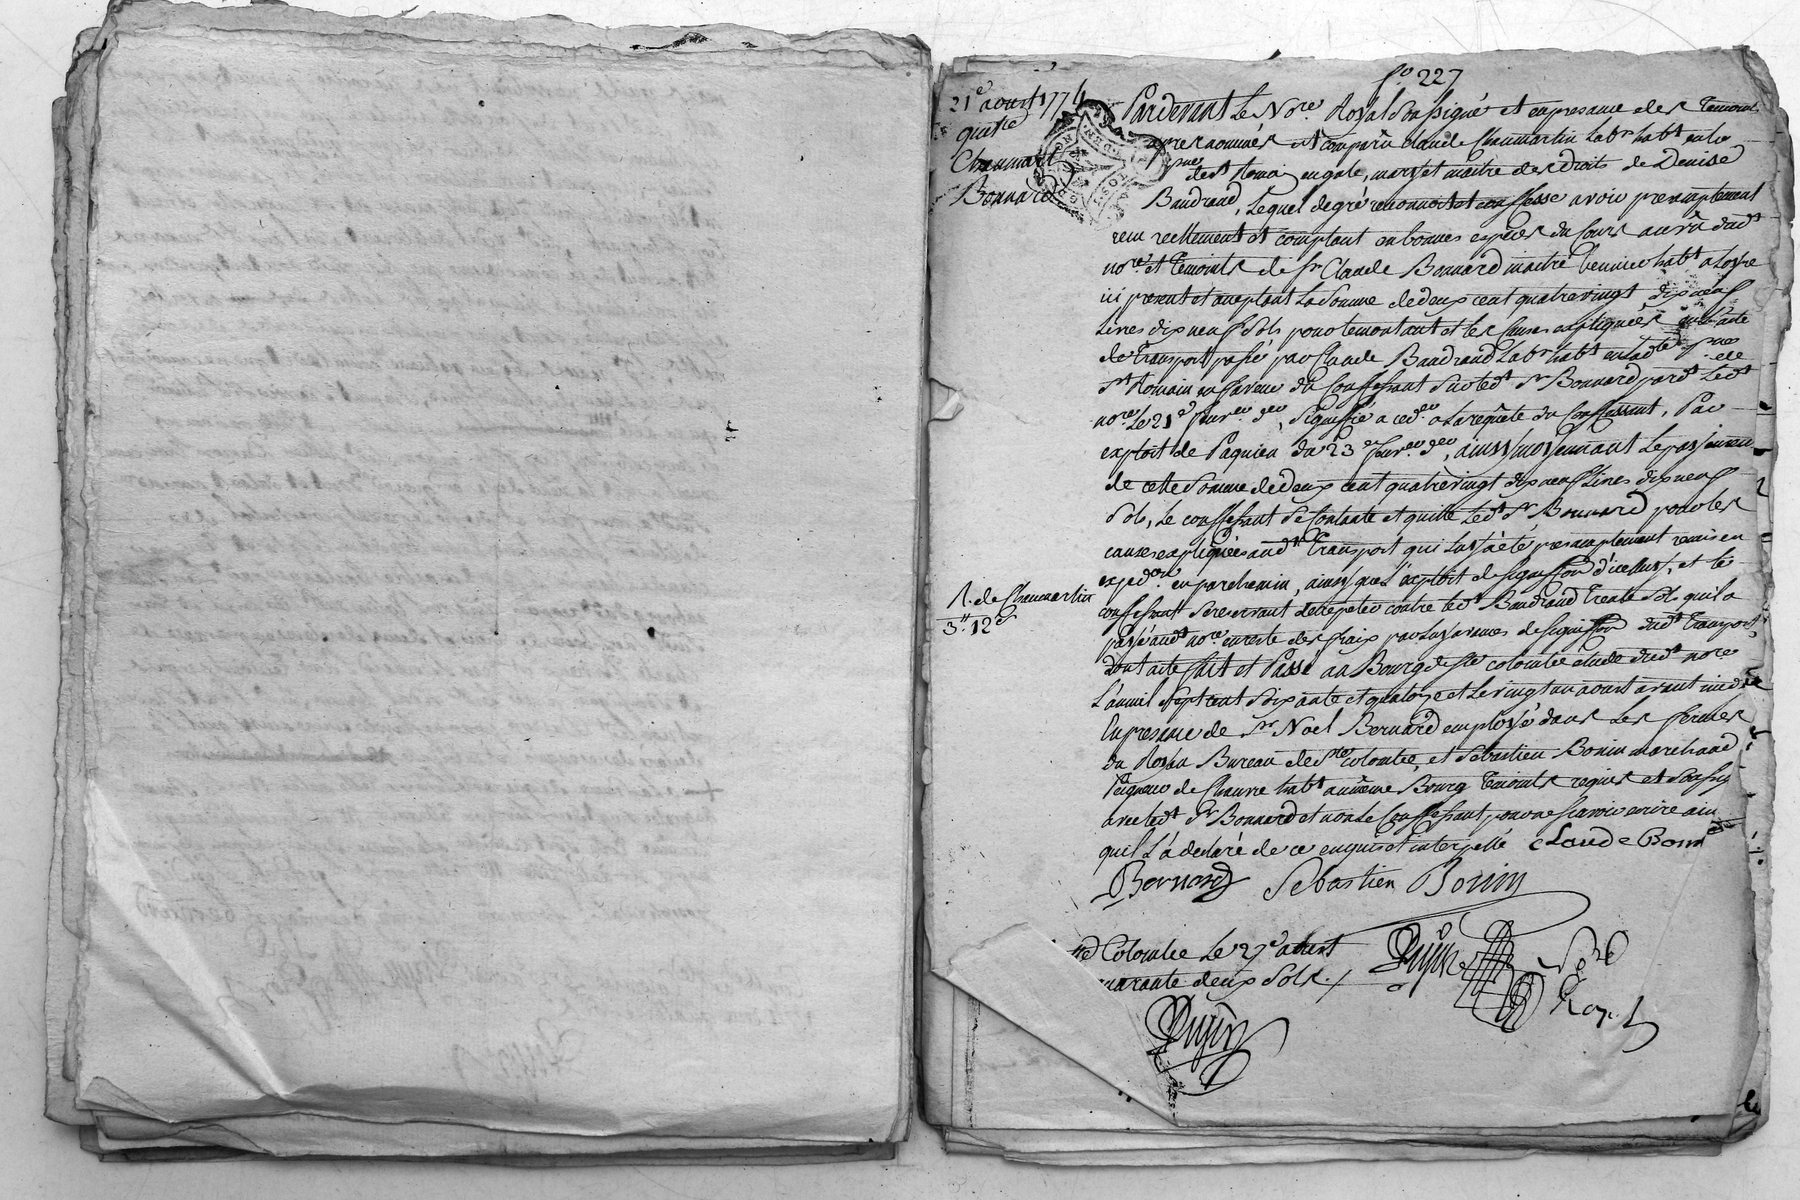 fo 227
21e aoust 1774
quitce
Chaumart
Bonnard
Pardevant Le Nore. Royal Soussigné et en presance des Temoins
apres nommés est comparu claude Chaumartin labr habt en la
psse de st Romain en gale, mary et maitre des droits de Denise
Baudrand, Lequel de gré reconnoit et confesse avoir presentement
recu reellement et comptant en bonnes especes du Cours au vû dudt
nore. et Temoins de sr Claude Bonnard maitre habt a Loyre
ici present et aceptant La Somme de deux cent quatre vingt dix neuf
Livres dix neuf Sols pour le montant et les Causes expliquées en l'acte
de Transport passé par Claude Baudrand Labr habt en lade psse de
st Romain en faveur du Confessant Sur ledt Sr Bonnard pardt Ledt
nore. Le 21e der, Signiffié a ced. a la requête du Confessant, Par
exploit de Paquien du 23e der, ainsy moyennant Le payement
de cette Somme de deux cent quatre vingt dix neuf Livres dix neuf
Sols, Le confessant Se Contante et quitte Ledt Sr Bonnard pour les
causes expliquées audt Transport qui Luy a été presentement remis en
expedon en parchemin, ainsy que L'exploit de Signiffon d'icelluy, et le
A. de Chaumartin
3tt 12s
confessant Se reservant de repeter contre ledt Baudrand Trente Sols qu'il a
payé audt nore en reste des fraix par Luy avancés de Signiffon dudt Transport,
Dont acte fait et Passé au Bourg de Ste colombe etude dudt nore
L'an mil Sept cent Soixante et quatorze et Le vingt un aoust avant midy
En presance de Sr Noel Bernard employé dans Les fermes
du Roy au Bureau de Ste colombe, et Sebastien Bonin marchand
Peigneur de Chanvre habt au même Bourg Temoins requis et Soussig
avec ledt Sr Bonnard et non Le Confessant pour ne sçavoir ecrire ain
qu'il L'a declaré de ce enquis et interpellé Claude Bonn
Bernard Sebastien Bonin
Colombe Le 27e aoust
quarante deux Sols